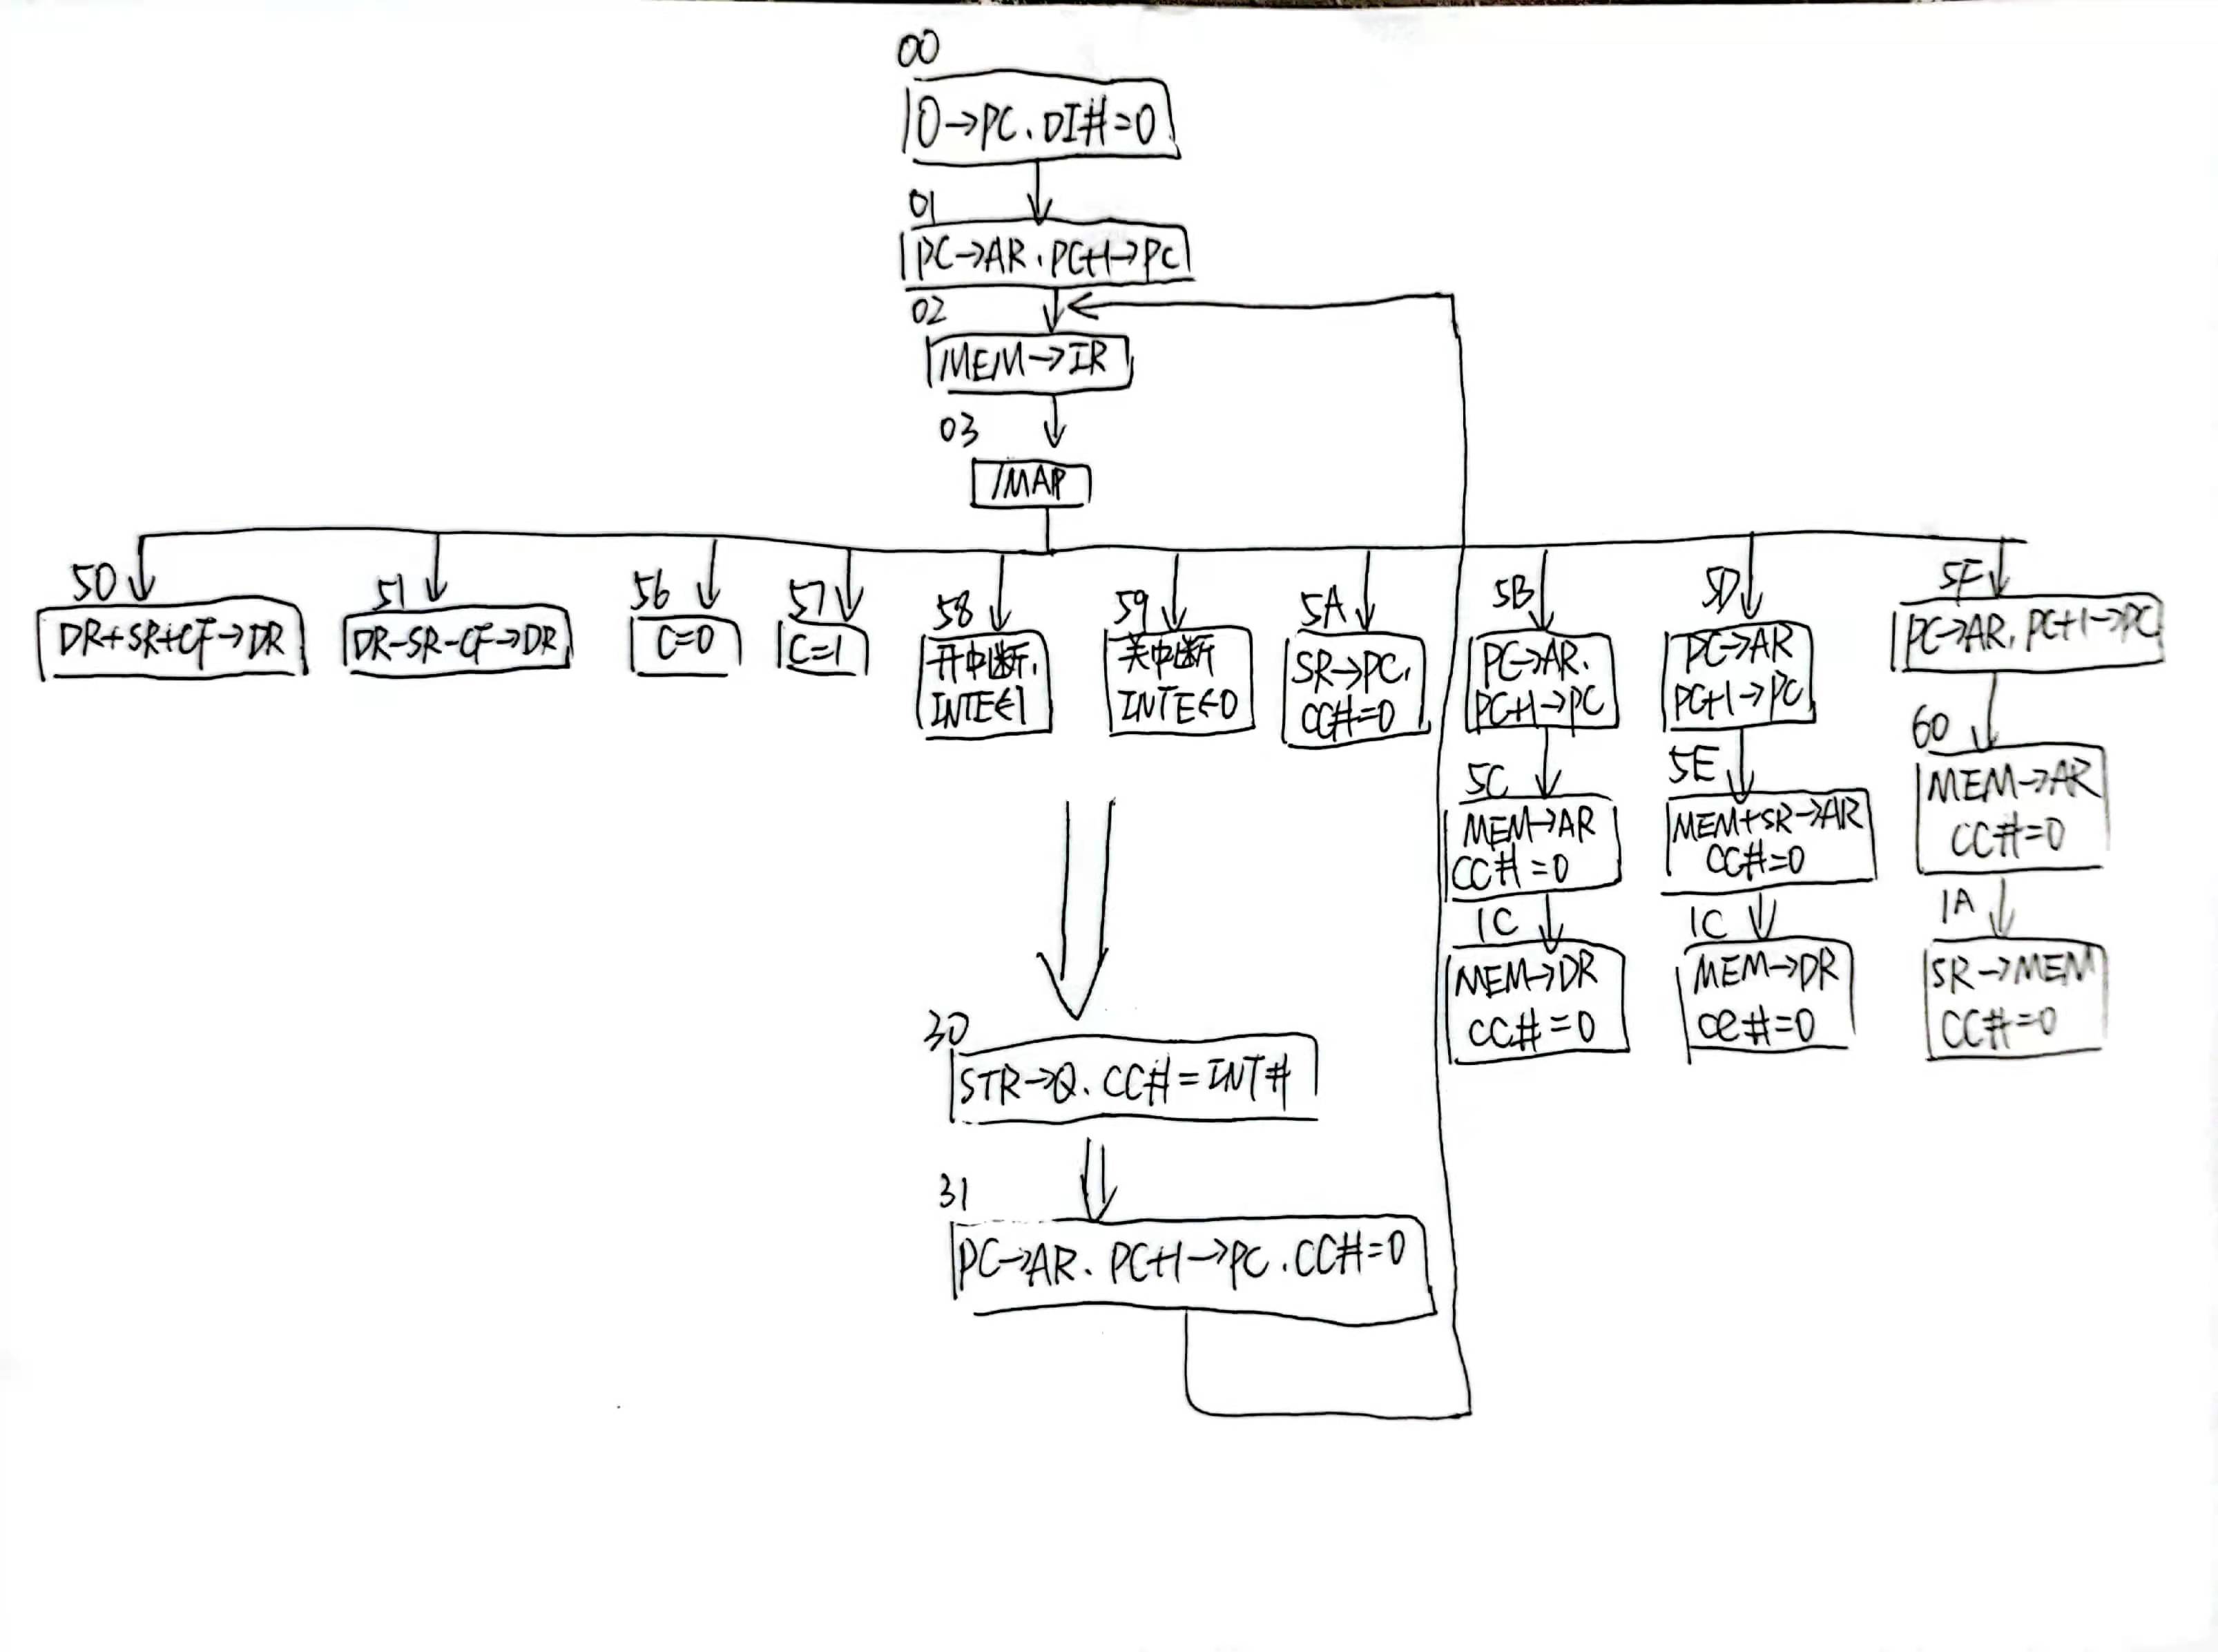 00
0→PC、DI#=0
01
PC→AR、PC+1→PC
02
MEM→IR
03
/MAP
50
DR+SR+CF→DR
51
DR-SR-CF→DR
56
C=0
57
C=1
58
开中断、
INTE←1
59
关中断
INTE←0
5A
SR→PC、
CC#=0
5B
PC→AR、
PC+1→PC
5C
MEM→AR
CC#=0
1C
MEM→DR
CC#=0
5D
PC→AR
PC+1→PC
5E
MEM+SR→AR
CC#=0
1C
MEM→DR
CC#=0
5F
PC→AR、PC+1→PC
60
MEM→AR
CC#=0
1A
SR→MEM
CC#=0
30
STR→Q、CC#=INT#
31
PC→AR、PC+1→PC、CC#=0